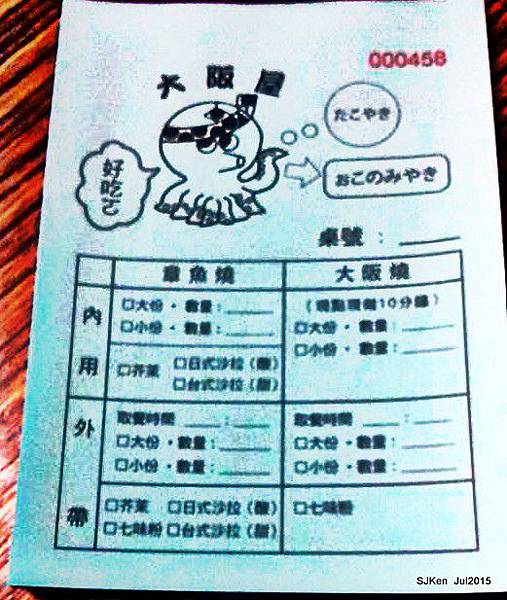 000458
大阪屋
たこやき
好吃ㄛ
おこのみやき
桌號：
章魚燒
大阪燒
內用
□大份・數量：
□小份・數量：
(現點現做10分鐘)
□大份・數量：
□小份・數量：
□芥茉 □日式沙拉(酸)
□台式沙拉(甜)
外帶
取餐時間 ：
□大份・數量：
□小份・數量：
取餐時間 ：
□大份・數量：
□小份・數量：
□芥茉 □日式沙拉(酸)
□七味粉 □台式沙拉(甜)
□七味粉
SJKen Jul2015